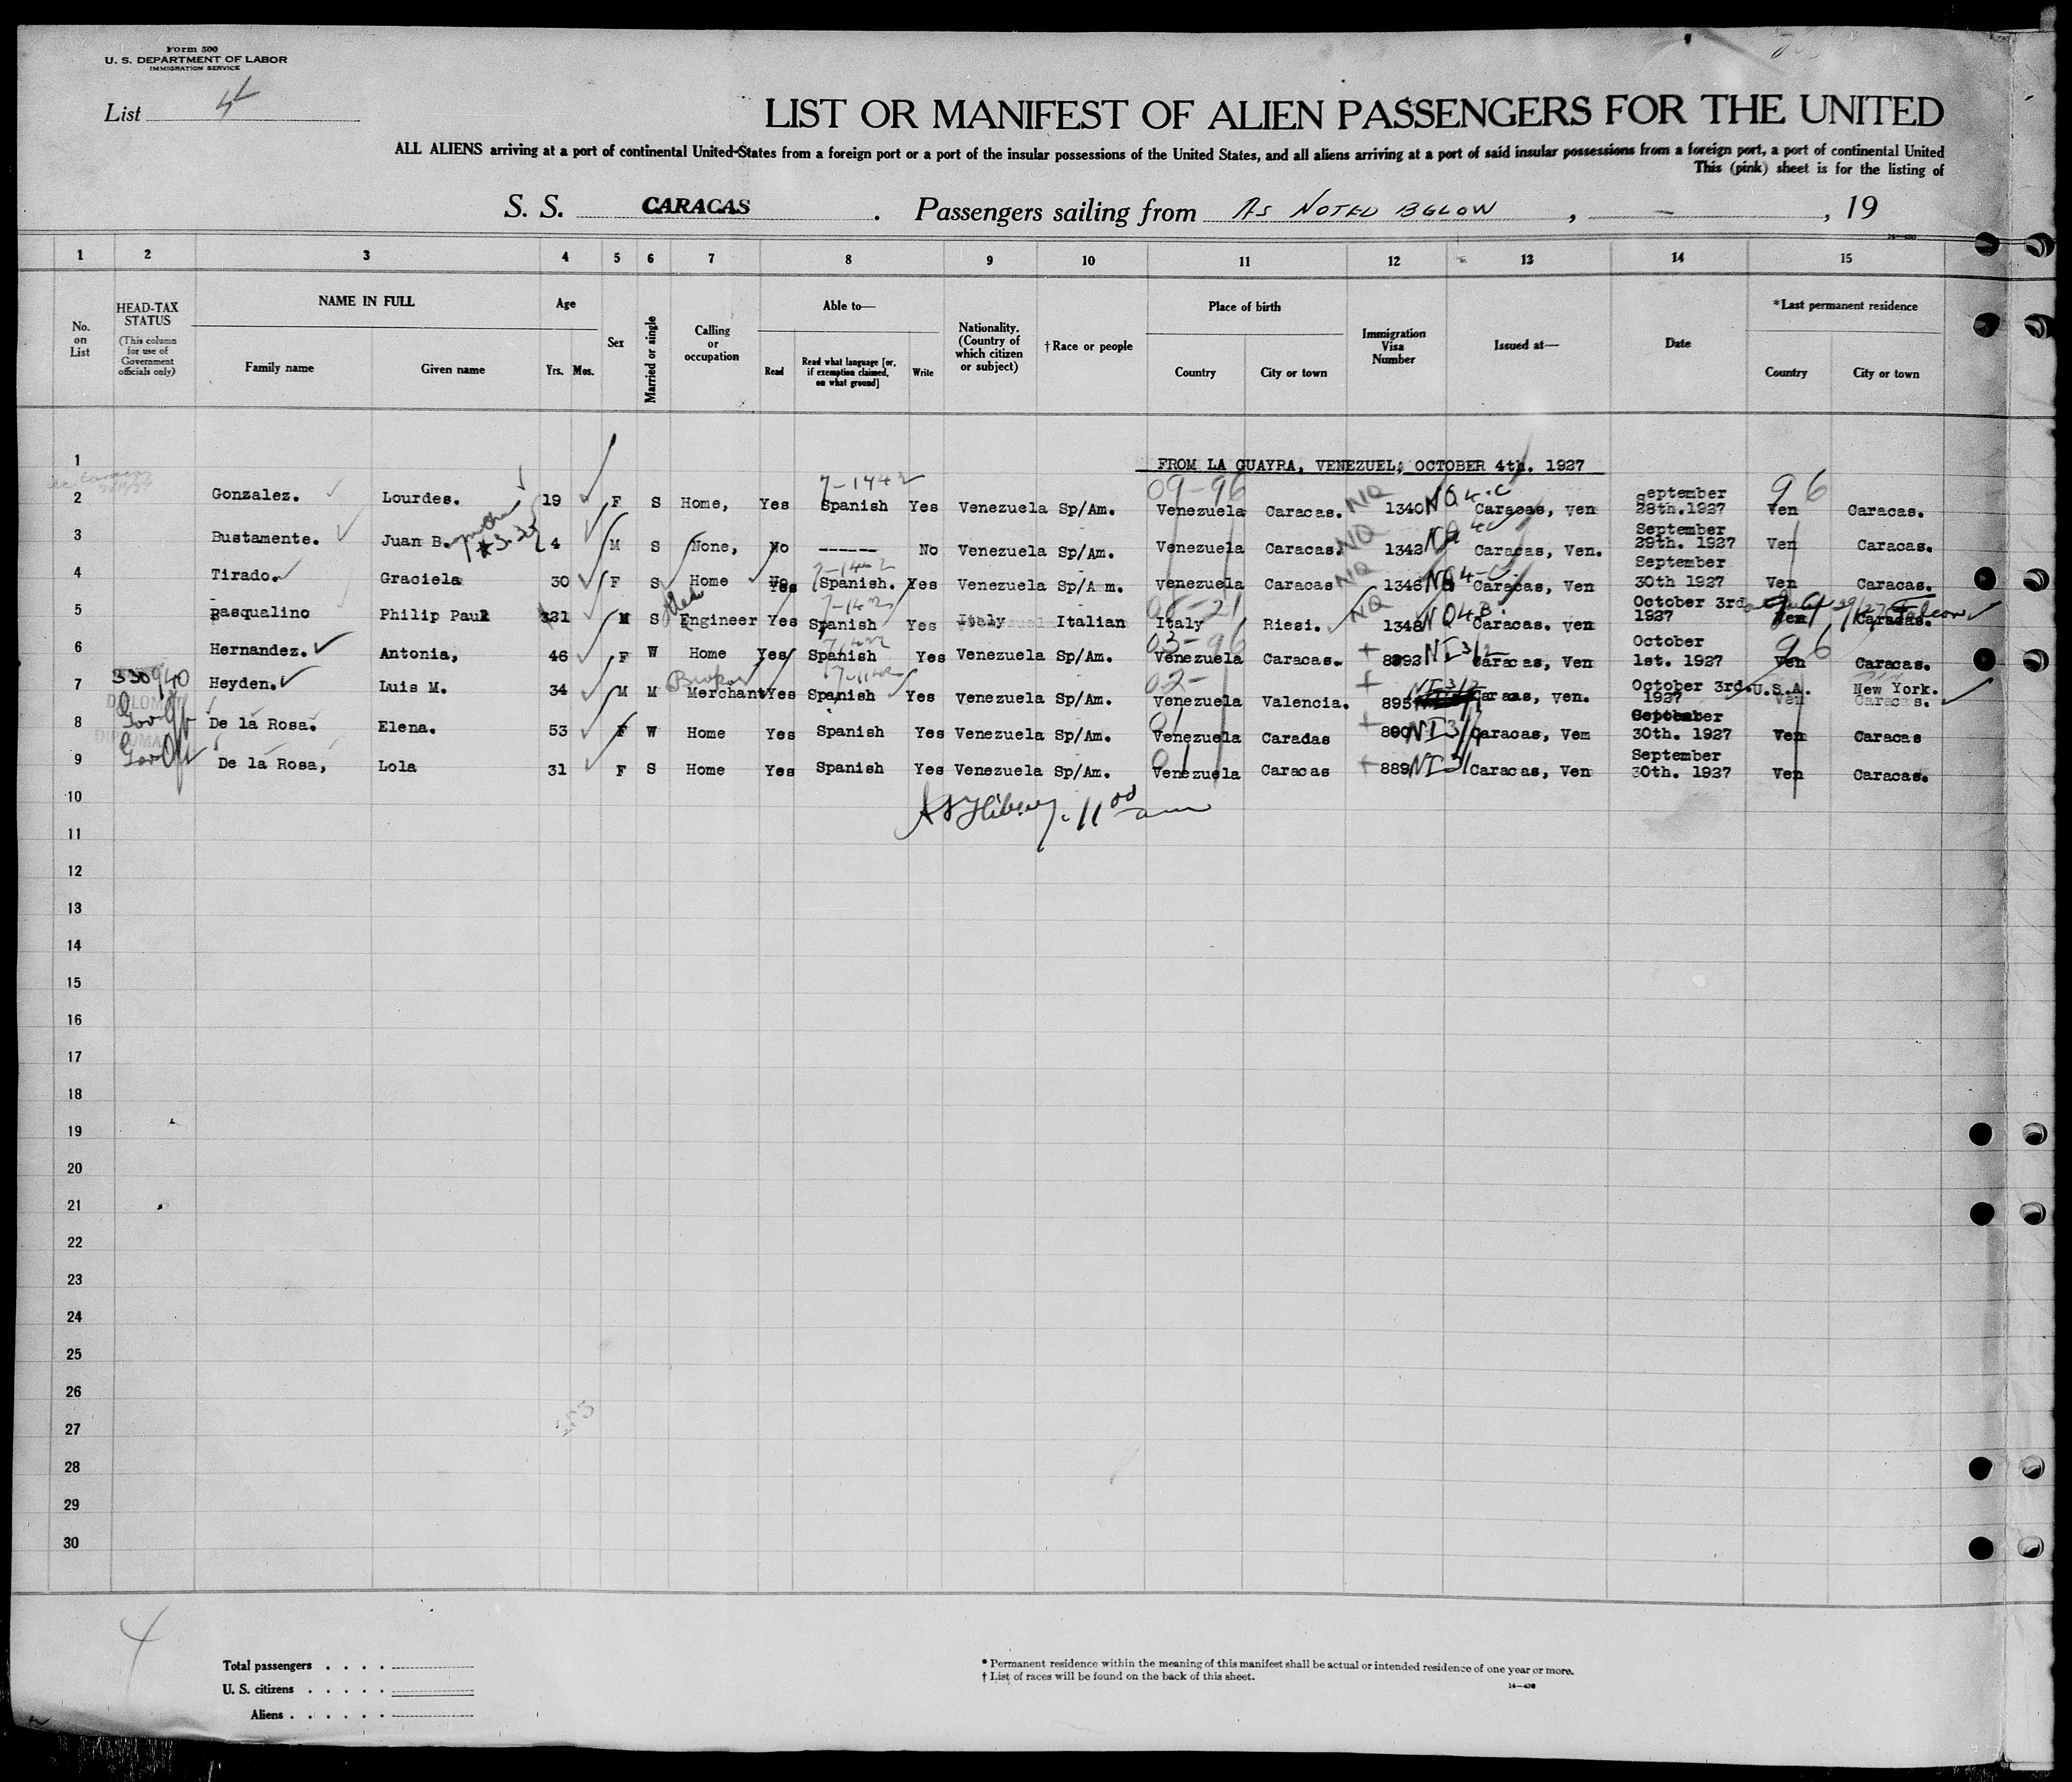 Form 500
U. S. DEPARTMENT OF LABOR
IMMIGRATION SERVICE
List 4
LIST OR MANIFEST OF ALIEN PASSENGERS FOR THE UNITED
ALL ALIENS arriving at a port of continental United States from a foreign port or a port of the insular possessions of the United States, and all aliens arriving at a port of said insular possessions from a foreign port, a port of continental United
This (pink) sheet is for the listing of
S. S. CARACAS. Passengers sailing from AS NOTED BELOW, —, 19
1 2 3 4 5 6 7 8 9 10 11 12 13 14 15
No. on List
HEAD-TAX STATUS (This column for use of Government officials only)
NAME IN FULL
Family name Given name
Age
Yrs. Mos.
Sex
Married or single
Calling or occupation
Able to—
Read Read what language [or, if exemption claimed, on what ground] Write
Nationality. (Country of which citizen or subject)
†Race or people
Place of birth
Country City or town
Immigration Visa Number
Issued at—
Date
*Last permanent residence
Country City or town
1 FROM LA GUAYRA, VENEZUEL, OCTOBER 4th. 1927
7-1442 09-96 96
2 Gonzalez. Lourdes. 19 F S Home, Yes Spanish Yes Venezuela Sp/Am. Venezuela Caracas. NQ 1340 NQ4-C Caracas, Ven September 28th.1927 Ven Caracas.
3 Bustamente. Juan B. 4 M S None, No ------ No Venezuela Sp/Am. Venezuela Caracas. NQ 1342 NQ 4C Caracas, Ven. September 29th. 1927 Ven Caracas.
7-1442
4 Tirado. Graciela 30 F S Home Yes Spanish. Yes Venezuela Sp/Am. Venezuela Caracas NQ 1346 NQ4-C Caracas, Ven September 30th 1927 Ven Caracas.
5 Pasqualino Philip Paul 21 M S Engineer Yes Spanish Yes Italy Italian Italy Riesi. NQ 1348 NQ4B. Caracas. Ven October 3rd 1927 Ven Caracas.
03-96 96
6 Hernandez. Antonia, 46 F W Home Yes Spanish Yes Venezuela Sp/Am. Venezuela Caracas. 8892 NI3/2 Caracas, Ven October 1st. 1927 Ven Caracas.
Broker 02-
7 Heyden. Luis M. 34 M M Merchant Yes Spanish Yes Venezuela Sp/Am. Venezuela Valencia. 895 NI3/2 Caracas, Ven. October 3rd. 1927 U.S.A. New York.
Ven Caracas.
DIPLOMAT
8 De la Rosa. Elena. 53 F W Home Yes Spanish Yes Venezuela Sp/Am. Venezuela Caradas 890 NI3/ Caracas, Vem September 30th. 1927 Ven Caracas
DIPLOMAT
9 De la Rosa, Lola 31 F S Home Yes Spanish Yes Venezuela Sp/Am. Venezuela Caracas 889 NI3/ Caracas, Ven September 30th. 1927 Ven Caracas.
10
11
12
13
14
15
16
17
18
19
20
21
22
23
24
25
26
27
28
29
30
4
Total passengers . . . .
U. S. citizens . . . . .
Aliens . . . . . .
* Permanent residence within the meaning of this manifest shall be actual or intended residence of one year or more.
† List of races will be found on the back of this sheet.
14—430